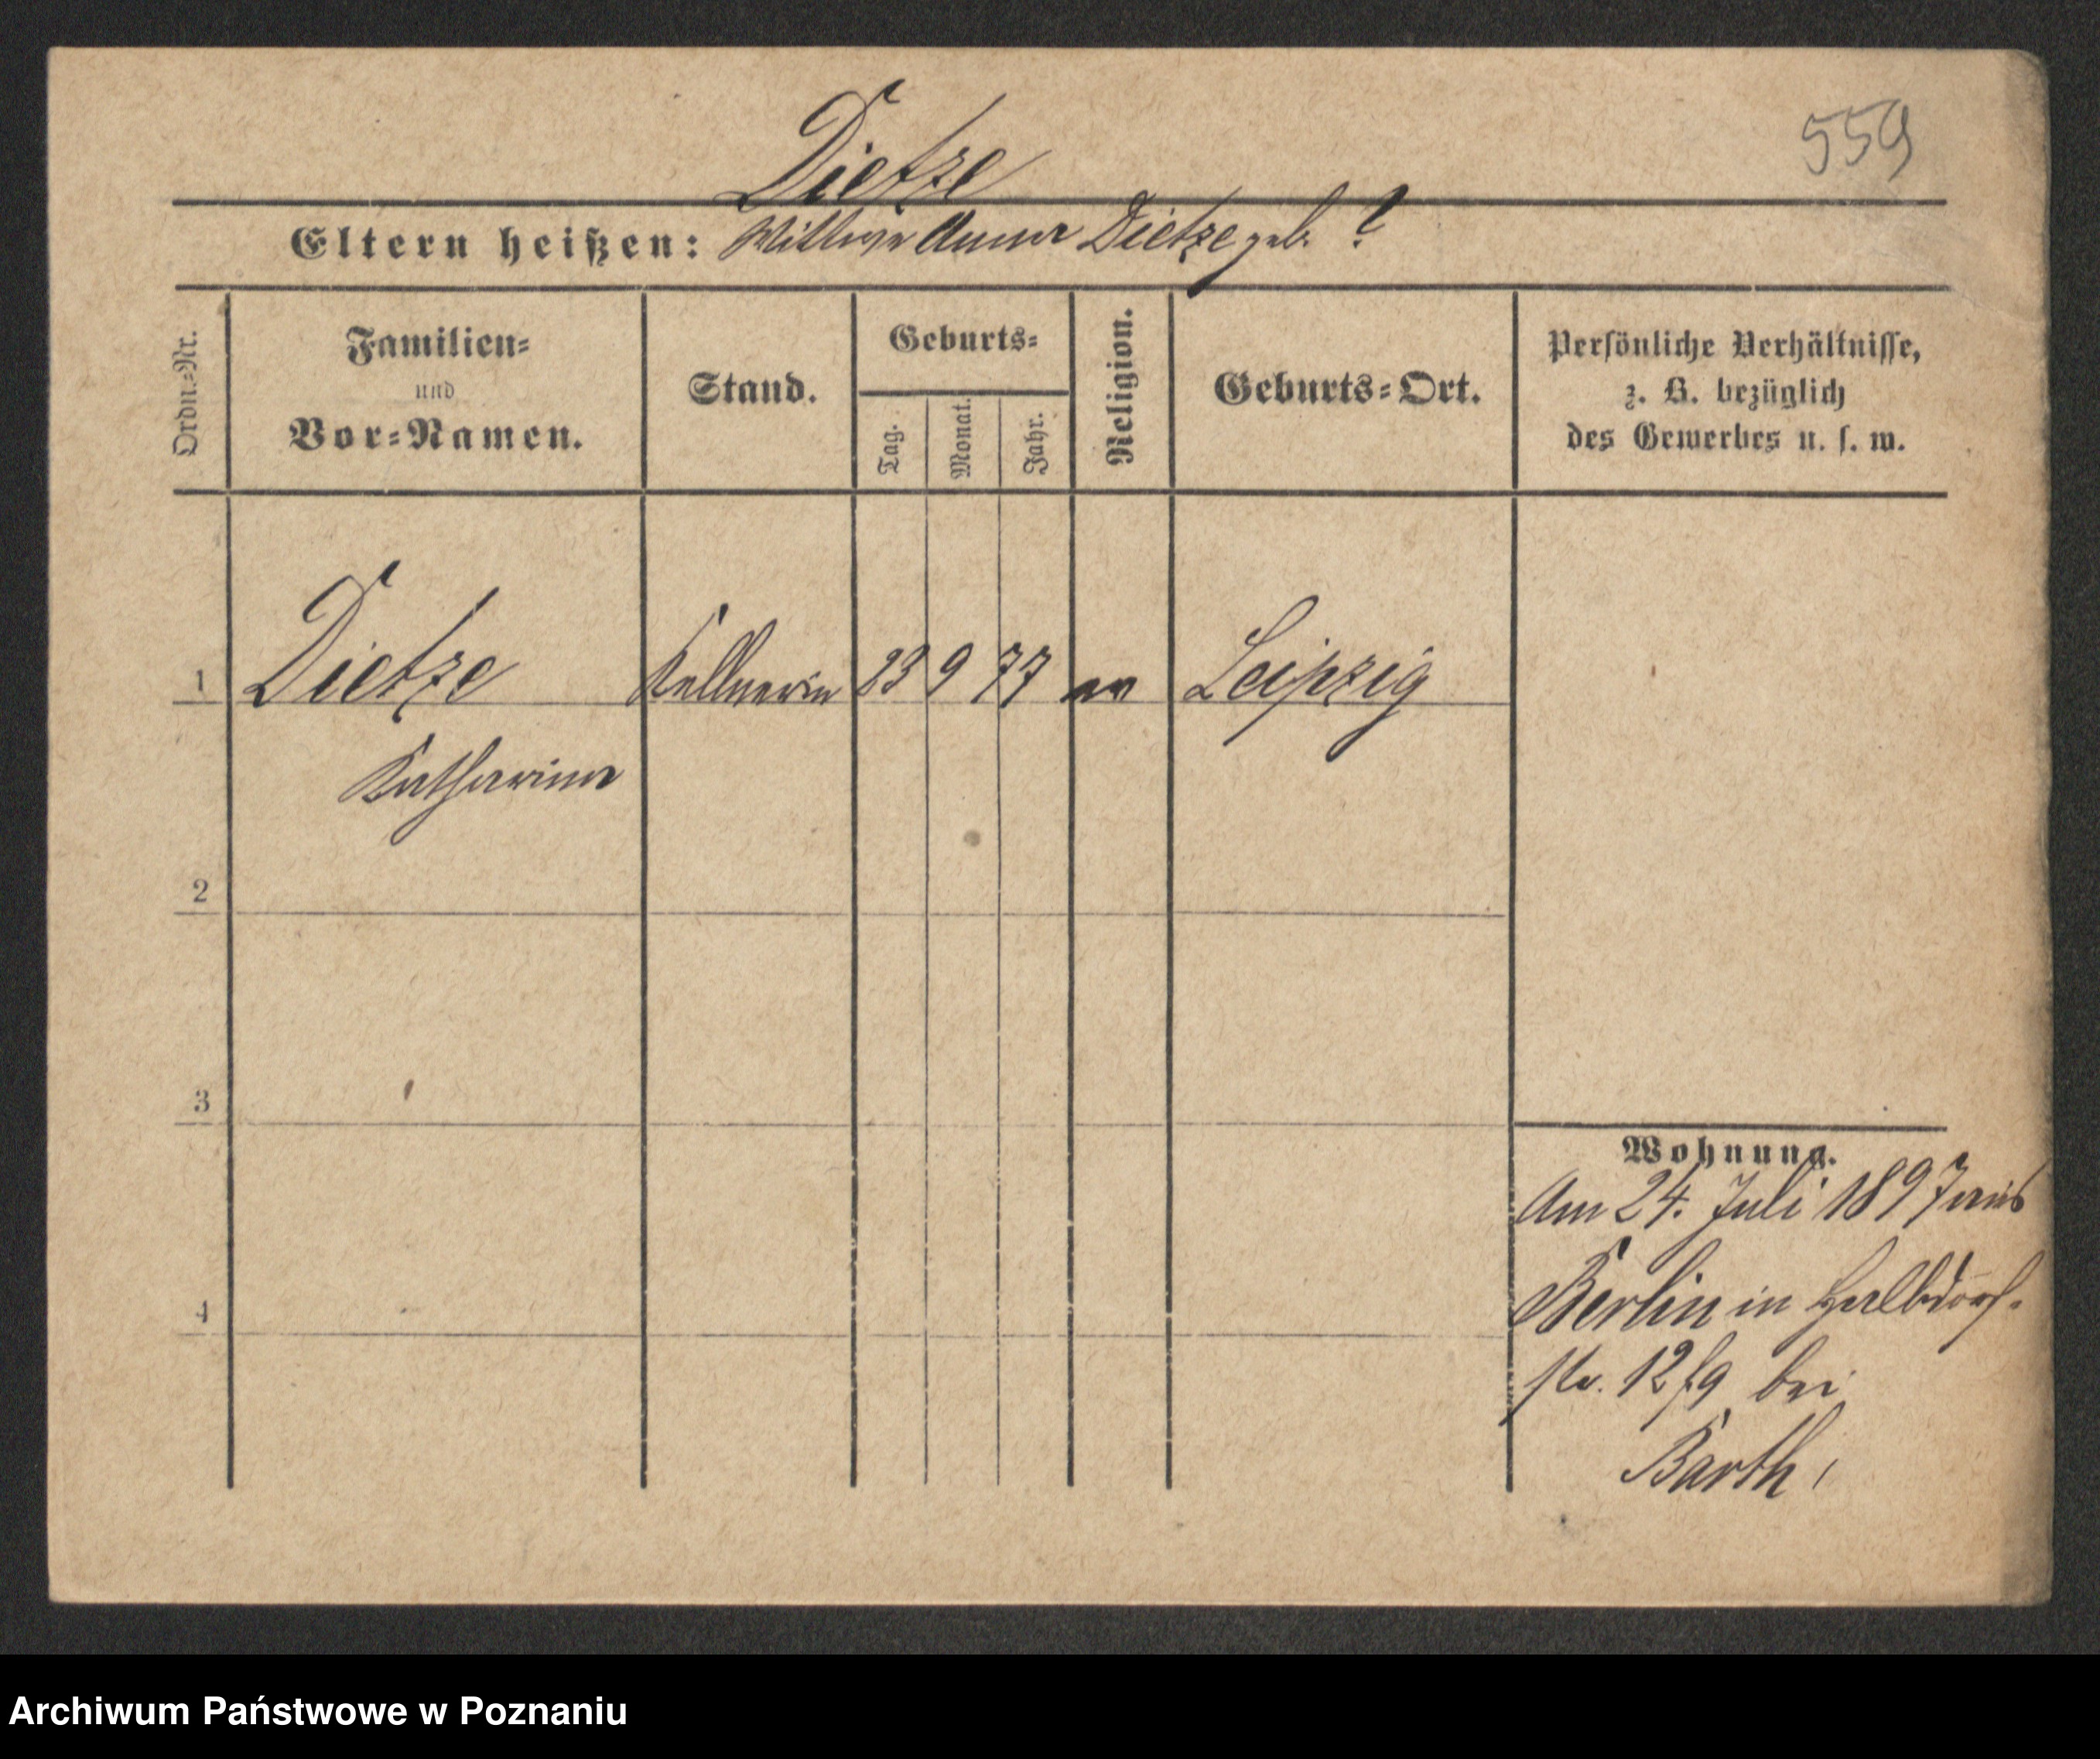 559
Dietze
Eltern heißen: Wittwe Anna Dietze geb. ?
Ordn.-Nr.
Familien-
und
Vor-Namen.
Stand.
Geburts-
Tag.
Monat.
Jahr.
Religion.
Geburts-Ort.
Persönliche Verhältnisse,
z. B. bezüglich
des Gewerbes u. s. w.
1 Dietze Kellnerin 23 9 77 ev Leipzig
Katharina
2
3
4
Wohnung.
Am 24. Juli 1897 aus
Berlin in Halbdorf-
str. 12/9 bei
Barth,
Archiwum Państwowe w Poznaniu